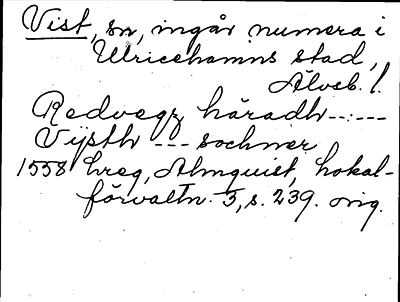 Vist, sn, ingår numera i
Ulricehamns stad,
Älvsb. l.
Redvegz häradh - - - -
Vijsth - - - sochner
1558 hreg, Almquist, Lokal-
förvaltn. 3, s. 239. orig.